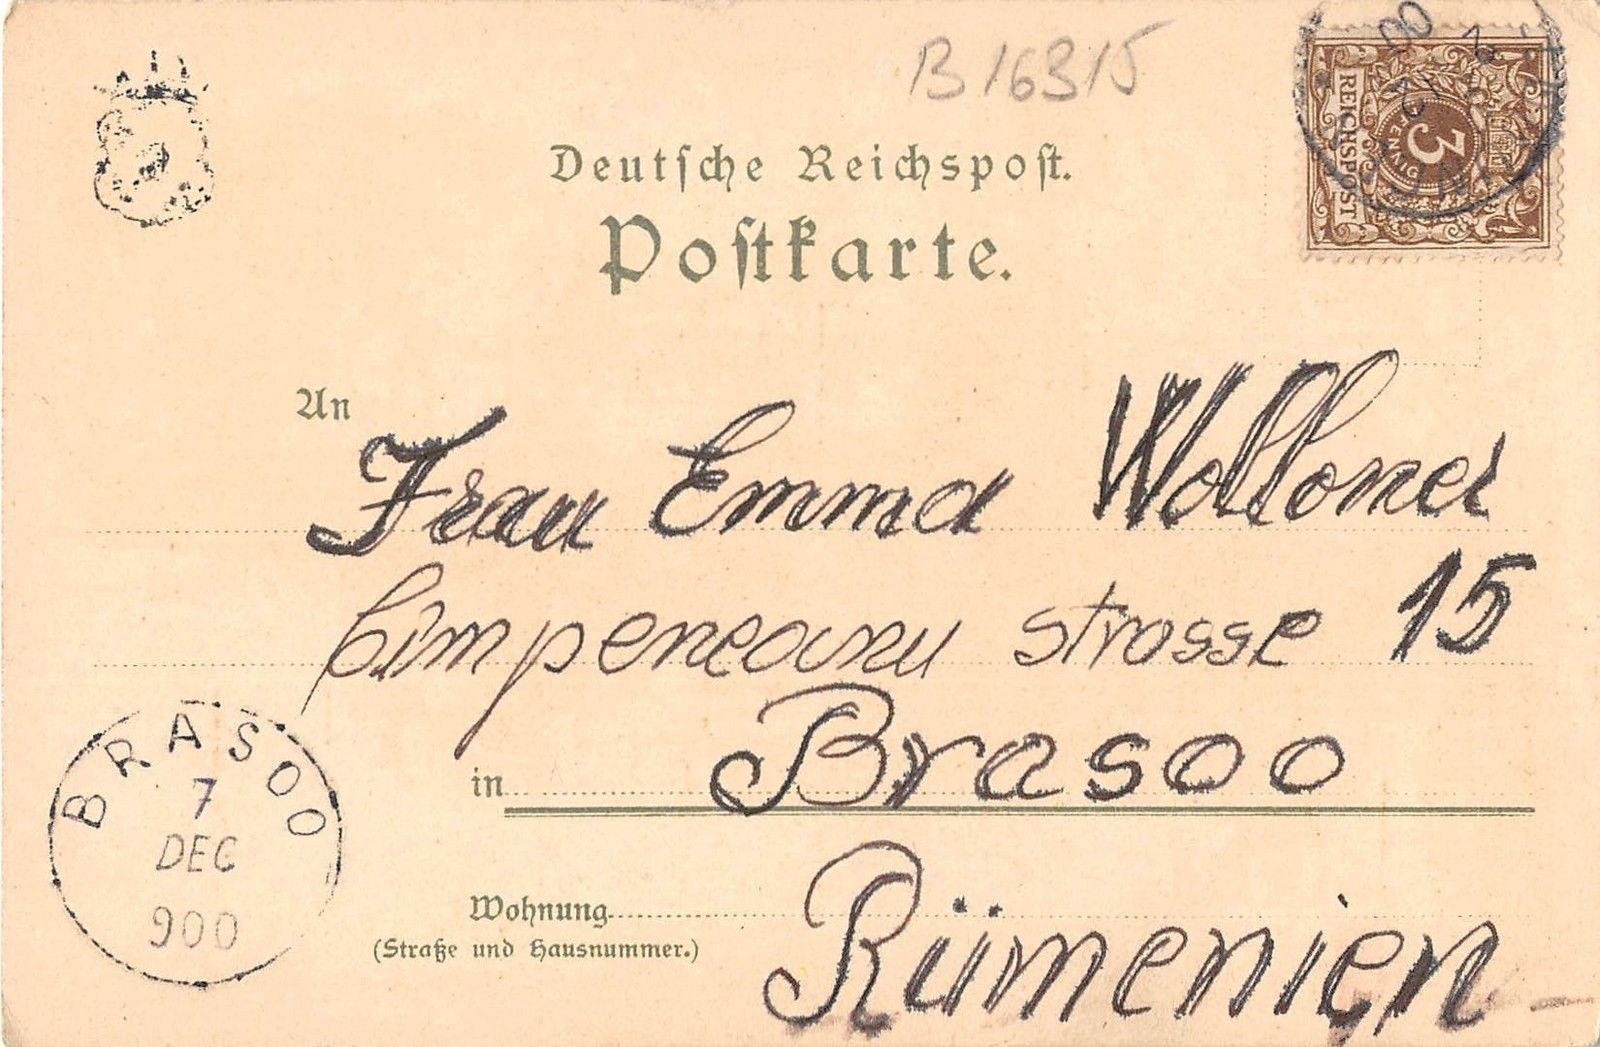 B 16315
REICHSPOST
3
PFENNIG
Deutsche Reichspost.
Postkarte.
An
Frau Emma Wolloner
Cimpeneanu strasse 15
in Brasoo
Rümenien
Wohnung
(Straße und Hausnummer.)
BRASOO
7
DEC
900